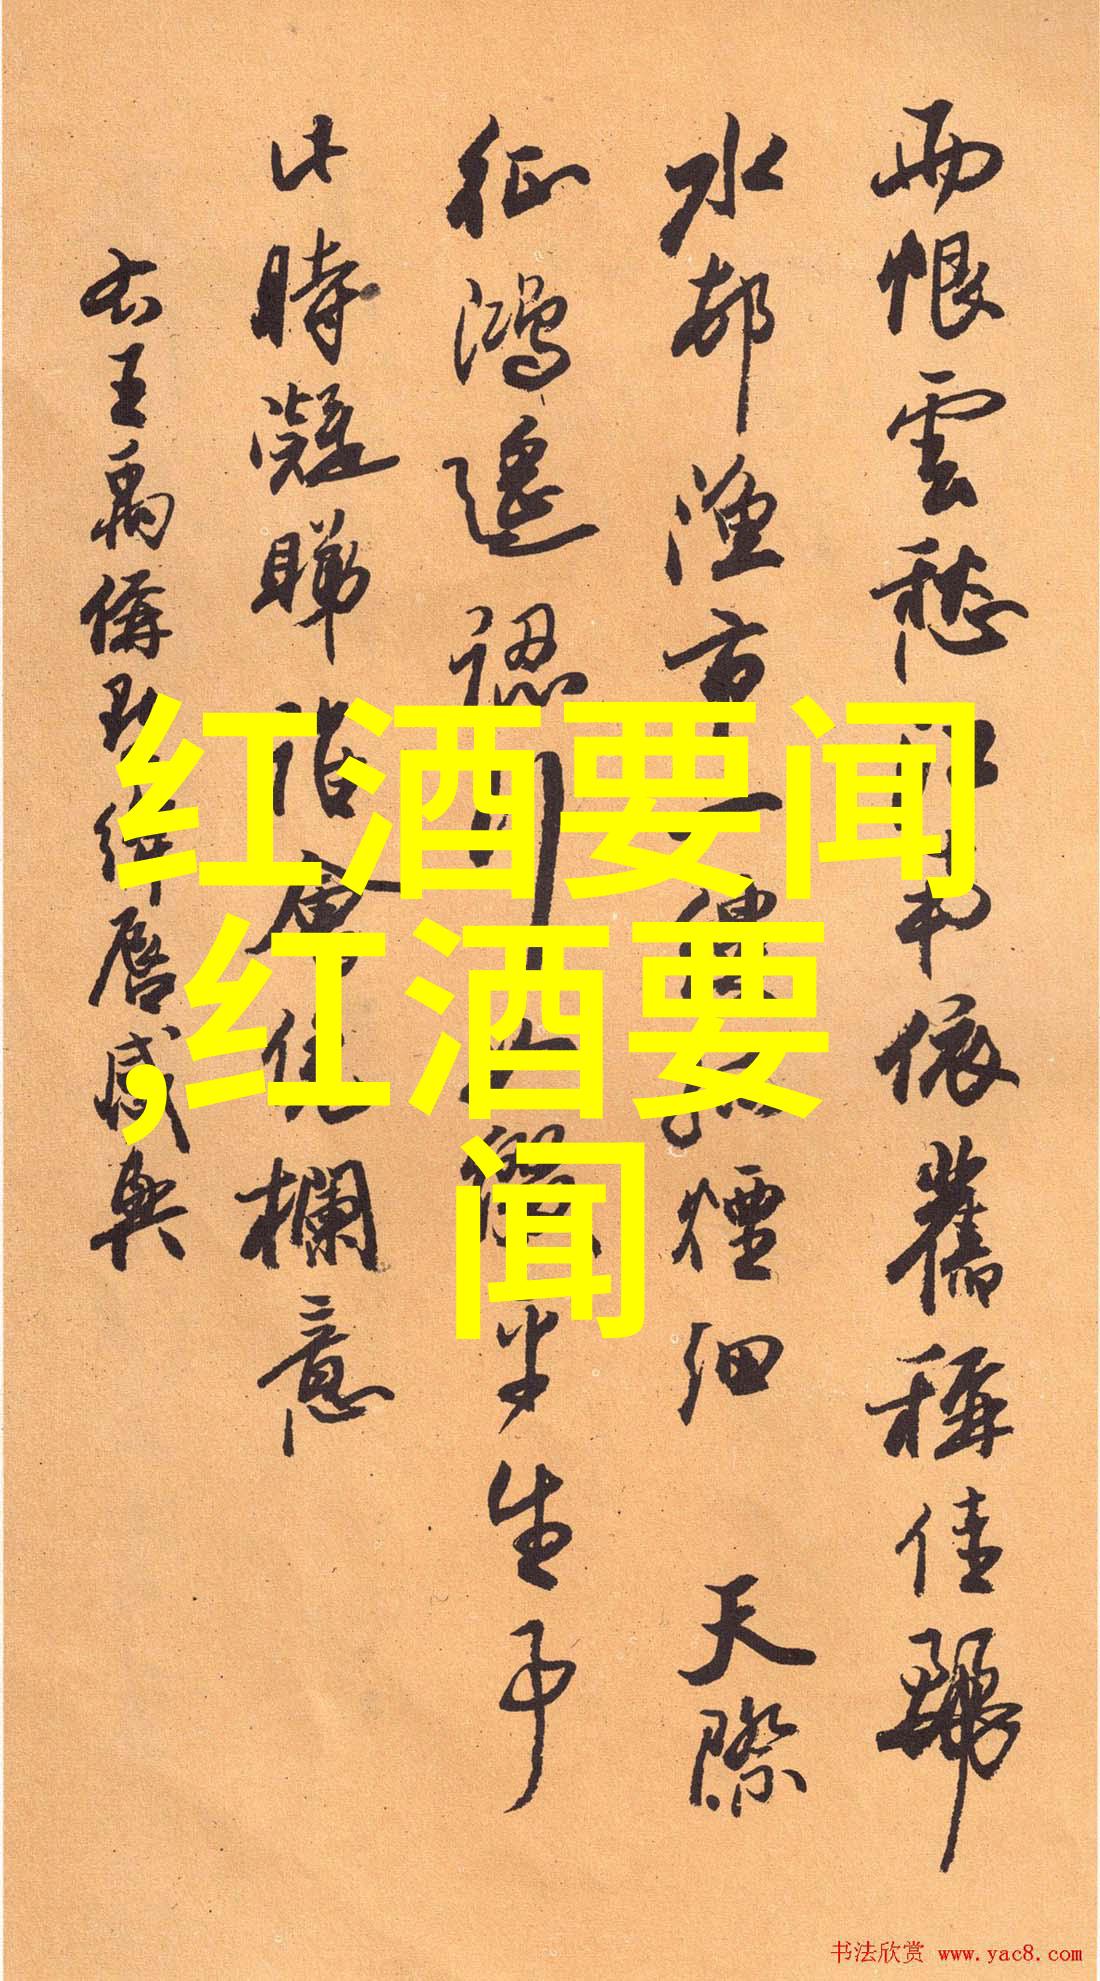 雨恨雲愁江南依舊稱佳麗
水邨漁市一縷孤煙細 天際
征鴻遙認行如綴平生事
此時凝睇誰會凭欄意
右王禹偁點絳唇感興
红酒要闻
,红酒要
闻
书法欣赏 www.yac8.com